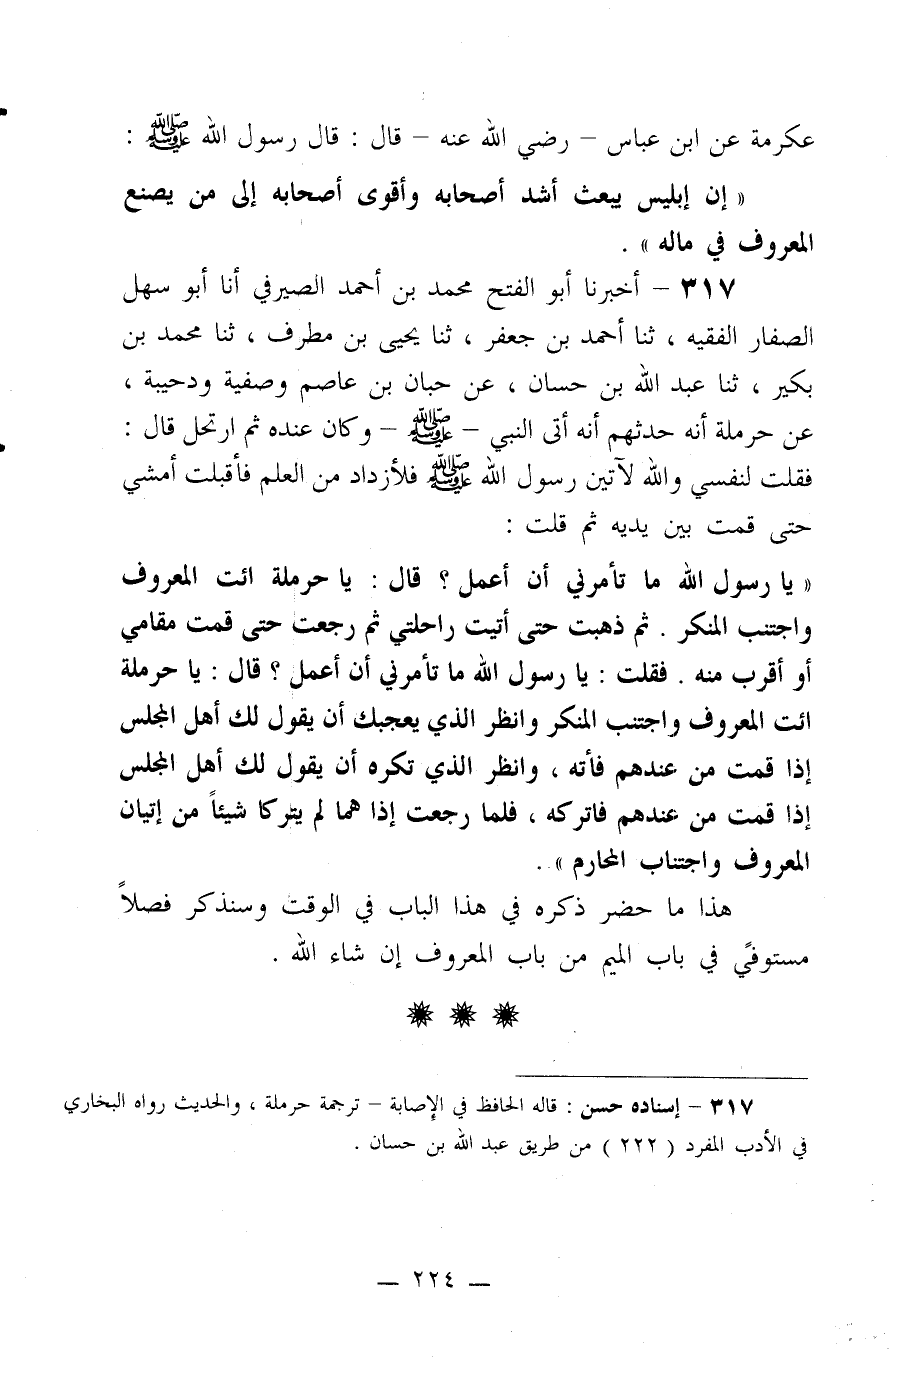 عكرمة عن ابن عباس – رضي الله عنه – قال : قال رسول الله ﷺ :
« إن إبليس يبعث أشد أصحابه وأقوى أصحابه إلى من يصنع
المعروف في ماله » .
٣١٧ – أخبرنا أبو الفتح محمد بن أحمد الصيرفي أنا أبو سهل
الصفار الفقيه ، ثنا أحمد بن جعفر ، ثنا يحيى بن مطرف ، ثنا محمد بن
بكير ، ثنا عبد الله بن حسان ، عن حبان بن عاصم وصفية ودحيبة ،
عن حرملة أنه حدثهم أنه أتى النبي – ﷺ – وكان عنده ثم ارتحل قال :
فقلت لنفسي والله لآتين رسول الله ﷺ فلأزداد من العلم فأقبلت أمشي
حتى قمت بين يديه ثم قلت :
« يا رسول الله ما تأمرني أن أعمل ؟ قال : يا حرملة ائت المعروف
واجتنب المنكر . ثم ذهبت حتى أتيت راحلتي ثم رجعت حتى قمت مقامي
أو أقرب منه . فقلت : يا رسول الله ما تأمرني أن أعمل ؟ قال : يا حرملة
ائت المعروف واجتنب المنكر وانظر الذي يعجبك أن يقول لك أهل المجلس
إذا قمت من عندهم فأته ، وانظر الذي تكره أن يقول لك أهل المجلس
إذا قمت من عندهم فاتركه ، فلما رجعت إذا هما لم يتركا شيئاً من إتيان
المعروف واجتناب المحارم » .
هذا ما حضر ذكره في هذا الباب في الوقت وسنذكر فصلاً
مستوفىً في باب الميم من باب المعروف إن شاء الله .
٣١٧ – إسناده حسن : قاله الحافظ في الإصابة – ترجمة حرملة ، والحديث رواه البخاري
في الأدب المفرد ( ٢٢٢ ) من طريق عبد الله بن حسان .
— ٢٢٤ —